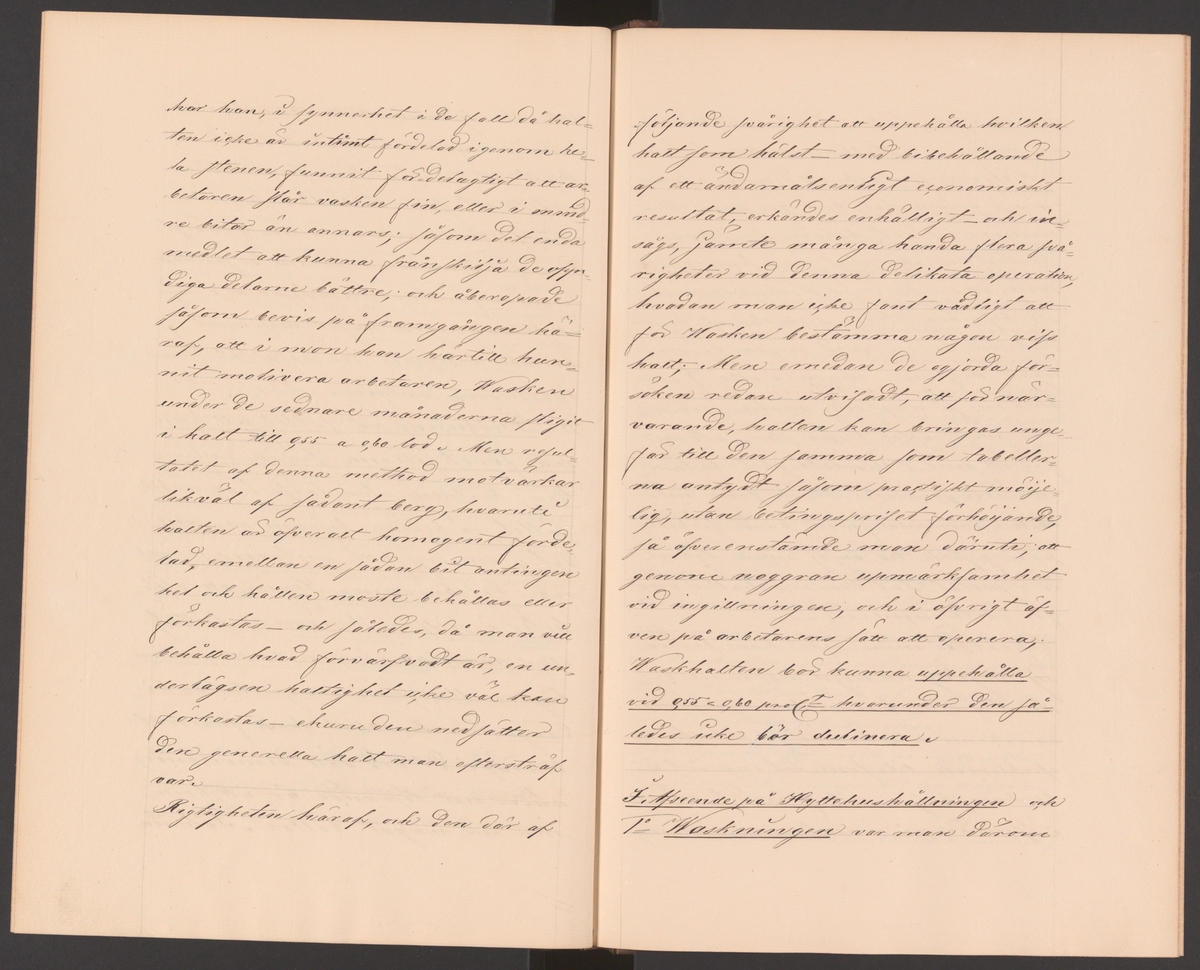 har han, i synnerhet i de fall då hal=
ten icke är intimt fördelad igenom he=
la stenen, funnit fördelagtigt att ar=
betaren slår vasken fin, eller i mind=
re bitar än annars; såsom det enda
medlet att kunna frånskilja de ofyn=
diga delarne bättre; och åberopade
såsom bevis på framgången hä=
raf, att i mon han härtill hun=
nit motivera arbetaren, Wasken
under de sednare månaderna stigit
i halt till 0,55 a 0,60 lod. Men resul=
tatet af denna method motvärkar
likväl af sådant berg, hvaruti
halten är öfveralt homogent förde=
lad, emellan en sådan bit antingen
hel och hållen moste behållas eller
förkastas – och således, då man vill
behålla hvad förvärfvadt är, en un=
derlägsen haltighet icke väl kan
förkastas – ehuru den nedsätter
den generella halt man eftersträf
var.
Rigtigheten häraf, och den där af
följande svårighet att uppehålla hvilken
halt som hälst – med bibehållande
af ett ändamålsenligt economiskt
resultat, erkändes enhälligt – och in=
sågs, jämte många handa flera svå=
righeter vid denna delikata operation,
hvadan man icke fant rådligt att
för Wasken bestämma någon viss
halt; Men emedan de gjorda för=
söken redan utvisadt, att för när=
varande, halten kan bringas unge=
fär till den samma som tabeller=
na antydt såsom practiskt möije=
lig, utan betingsprisets förhöjande,
så öfverenstämde man däruti, att
genom noggran upmärksamhet
vid ingillningen, och i öfvrigt äf=
ven på arbetarens sätt att operera,
Waskhalten bör kunna uppehålla
vid 0,55 a 0,60 pro Ct hvarunder den så=
ledes icke bör declinera.
I Afseende på Hyttehushållningen och
1o Waskningen var man därom